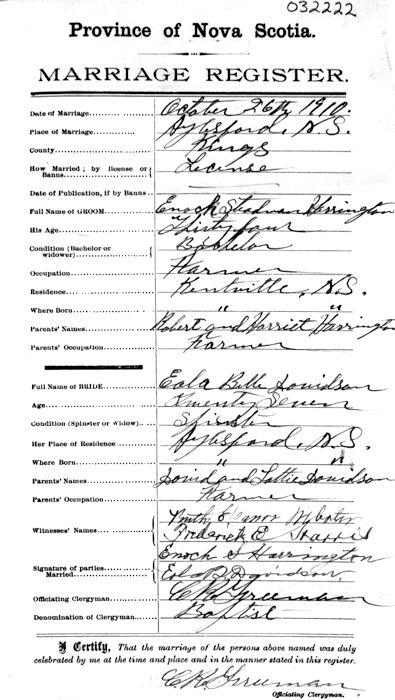 032222
Province of Nova Scotia.
MARRIAGE REGISTER.
Date of Marriage October 26th 1910.
Place of Marriage Aylesford, N.S.
County Kings
How Married; by license or Banns License
Date of Publication, if by Banns
Full Name of GROOM Enoch Steadman Harrington
His Age Thirty four
Condition (Bachelor or widower) Bachelor
Occupation Farmer
Residence Kentville, N.S.
Where Born " "
Parents' Names Robert and Harriet Harrington
Parents' Occupation Farmer
Full Name of BRIDE Eola Belle Davidson
Age Twenty Seven
Condition (Spinster or Widow) Spinster
Her Place of Residence Aylesford, N.S.
Where Born " "
Parents' Names David and Lottie Davidson
Parents' Occupation Farmer
Witnesses' Names Ruth Eleanor
Frederick E Harris
Signature of parties Married Enoch S Harrington
Eola B Davidson,
Officiating Clergyman Freeman
Denomination of Clergyman Baptist
I Certify, That the marriage of the persons above named was duly
celebrated by me at the time and place and in the manner stated in this register.
Freeman
Officiating Clergyman.